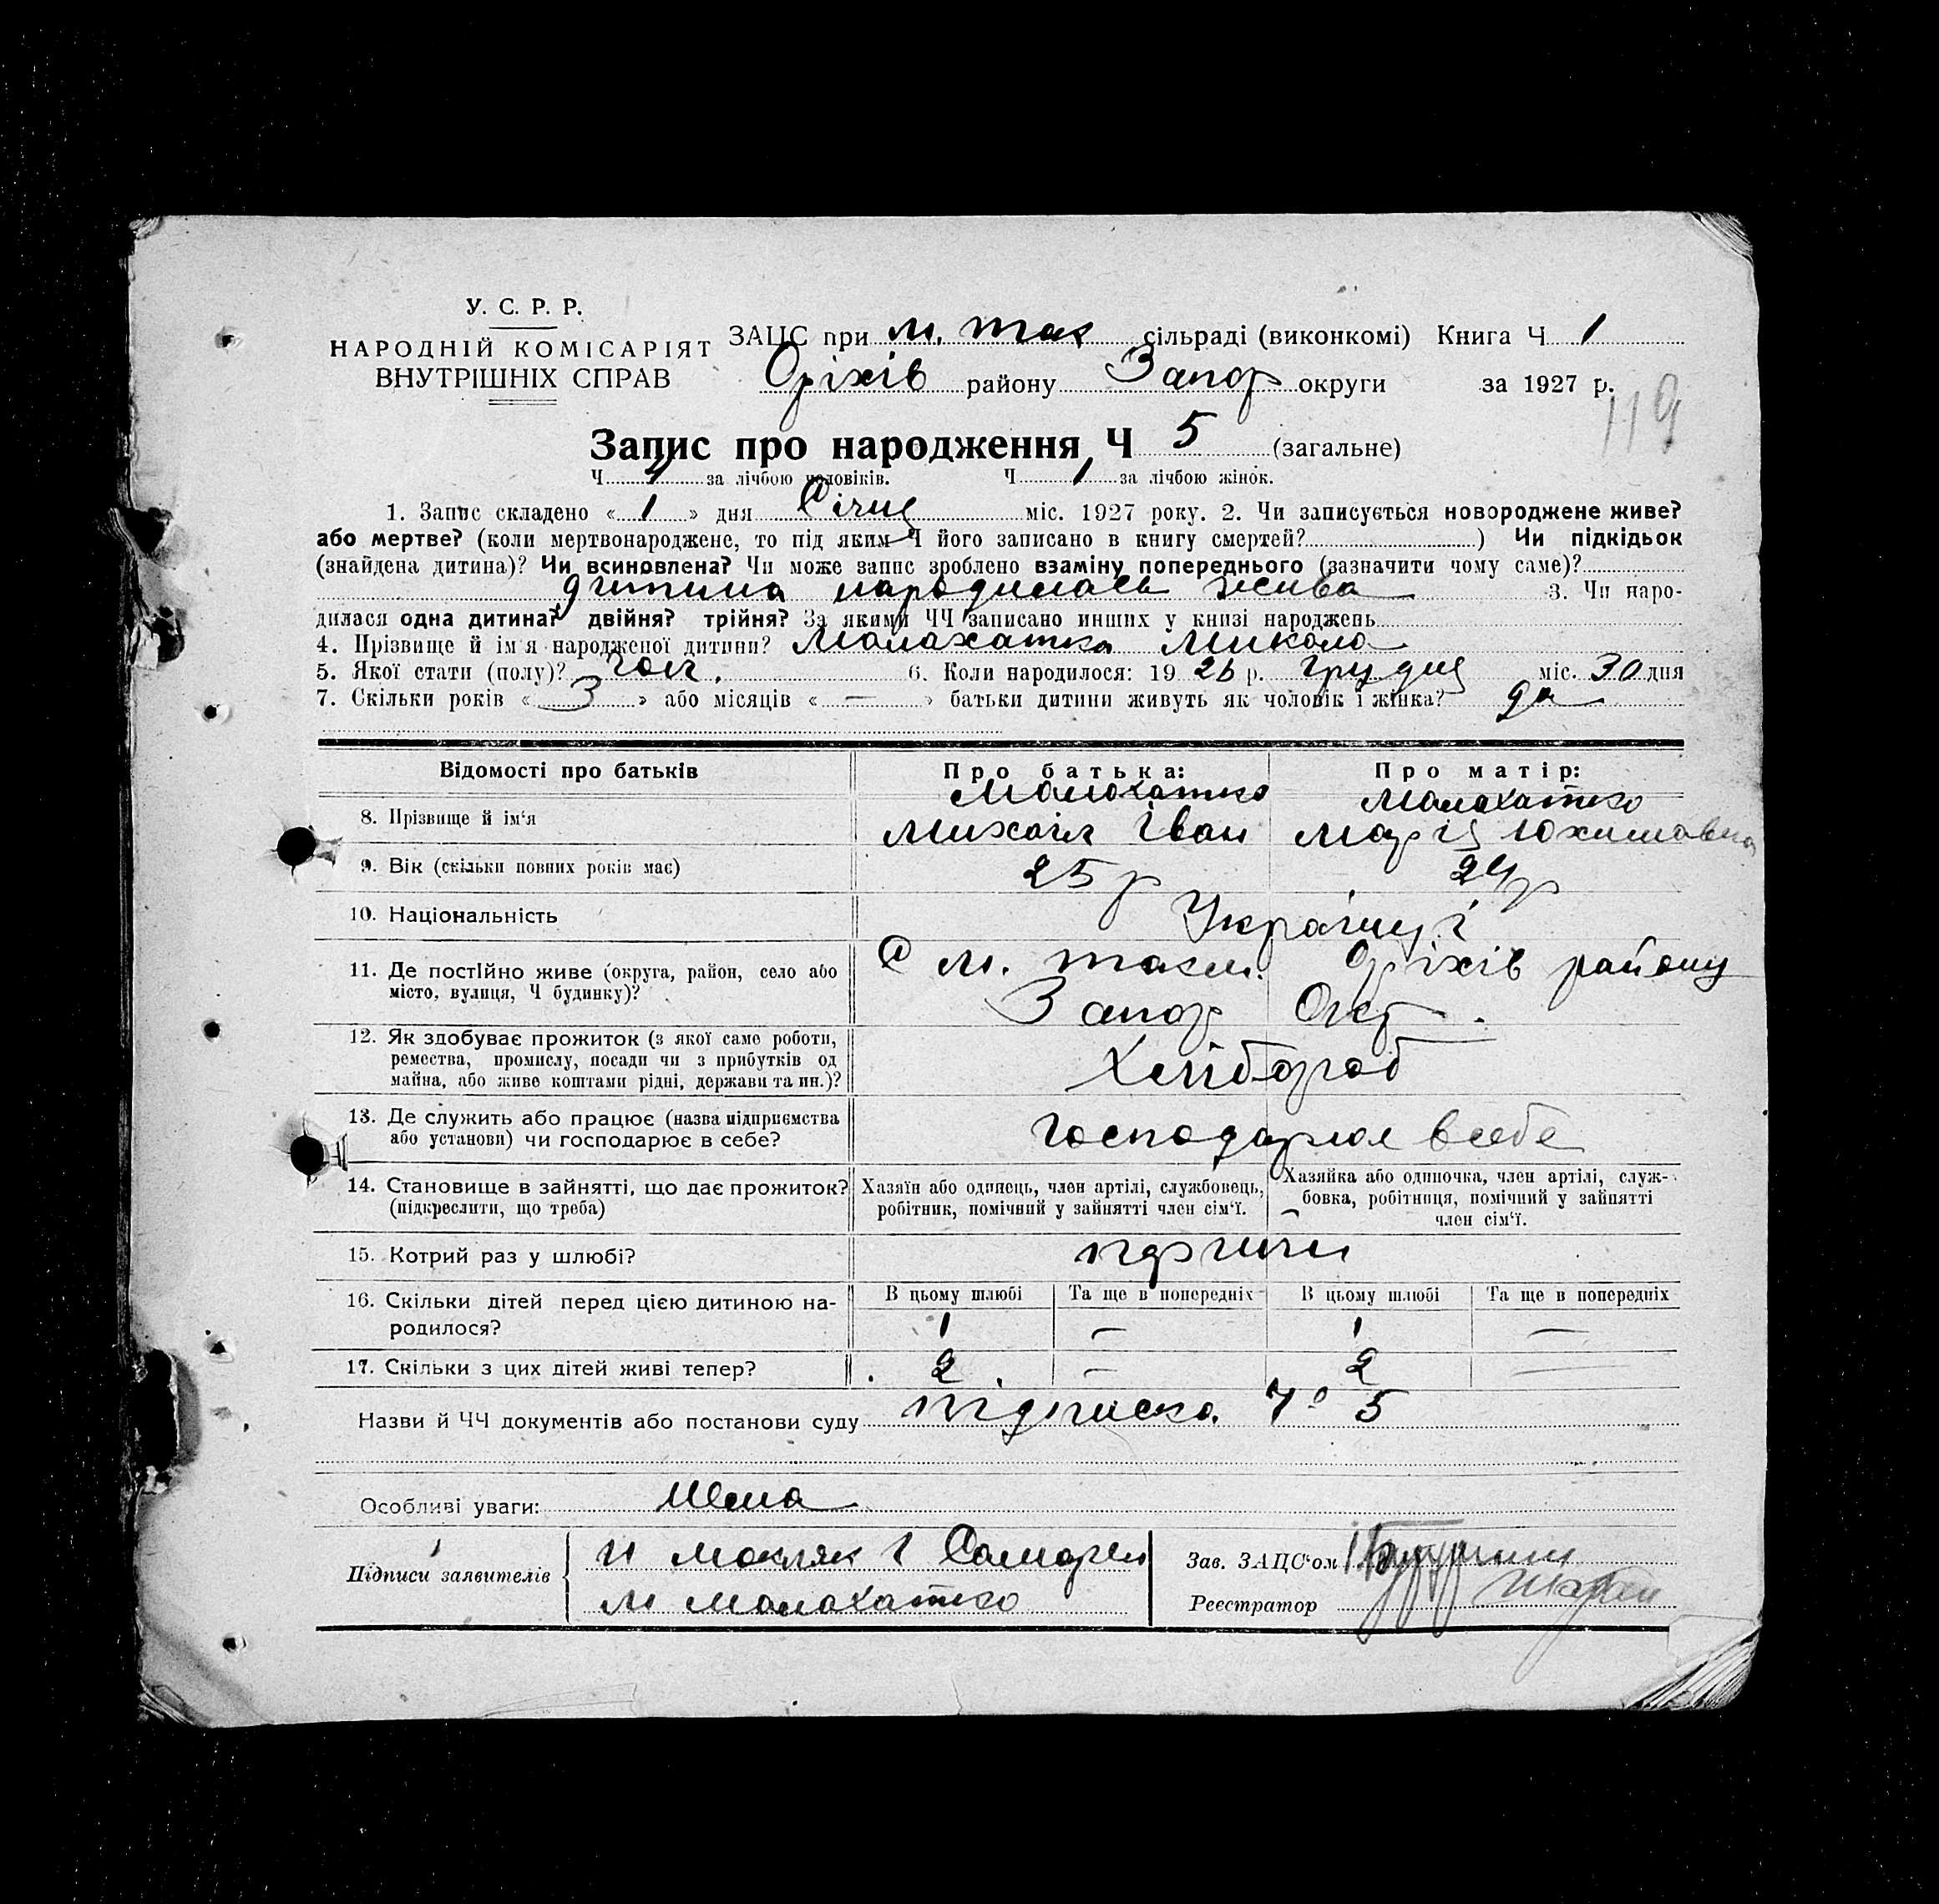 У. С. Р. Р.
НАРОДНІЙ КОМІСАРІЯТ
ВНУТРІШНІХ СПРАВ
ЗАЦС при м. ток сільраді (виконкомі) Книга Ч 1
Оріхів району Запор округи за 1927 р.
119
Запис про народження Ч 5 (загальне)
Ч 4 за лічбою чоловіків. Ч 1 за лічбою жінок.
1. Запис складено « 1 » дня Січня міс. 1927 року. 2. Чи записується новороджене живе?
або мертве? (коли мертвонароджене, то під яким Ч його записано в книгу смертей? ) Чи підкідьок
(знайдена дитина)? Чи всиновлена? Чи може запис зроблено взаміну попереднього (зазначити чому саме)?
дитина народилась жива 3. Чи наро-
дилася одна дитина? двійня? трійня? За якими ЧЧ записано инших у книзі народжень
4. Прізвище й ім'я народженої дитини? Малахатка Микола
5. Якої стати (полу)? чол. 6. Коли народилося: 19 26 р. грудня міс. 30 дня
7. Скільки років « 3 » або місяців « — » батьки дитини живуть як чоловік і жінка? да
Відомості про батьків Про батька: Про матір:
Малахатко Малахатко
8. Прізвище й ім'я Михаіл Іван Марія Юхимовна
9. Вік (скільки повних років має) 25 р 24 р
10. Національність Українці
11. Де постійно живе (округа, район, село або
місто, вулиця, Ч будинку)?
С м. токм. Оріхів району
Запор Окр.
12. Як здобуває прожиток (з якої само роботи,
ремества, промислу, посади чи з прибутків од
майна, або живе коштами рідні, держави та ин.)?
Хлібороб
13. Де служить або працює (назва підприємства
або установи) чи господарює в себе?
господарює в себе
14. Становище в зайнятті, що дає прожиток?
(підкреслити, що треба)
Хазяїн або одинець, член артілі, службовець,
робітник, помічний у зайнятті член сім'ї.
Хазяйка або одиночка, член артілі, служ-
бовка, робітниця, помічний у зайнятті
член сім'ї.
15. Котрий раз у шлюбі?
16. Скільки дітей перед цією дитиною на-
родилося?
В цьому шлюбі Та ще в попередніх В цьому шлюбі Та ще в попередніх
1 — 1 —
17. Скільки з цих дітей живі тепер? 2 — 2 —
Назви й ЧЧ документів або постанови суду підписка Ч° 5
Особливі уваги: Нема
Підписи заявителів
М Малахатко
Зав. ЗАЦС'ом
Реєстратор